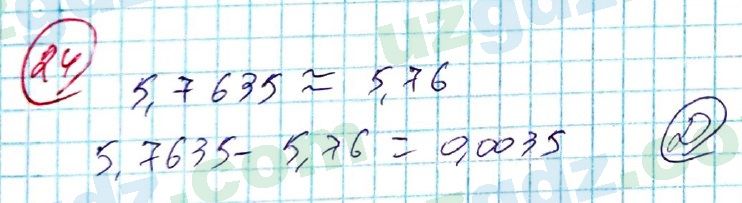 24
5,7635 ≈ 5,76
5,7635 - 5,76 = 0,0035 D